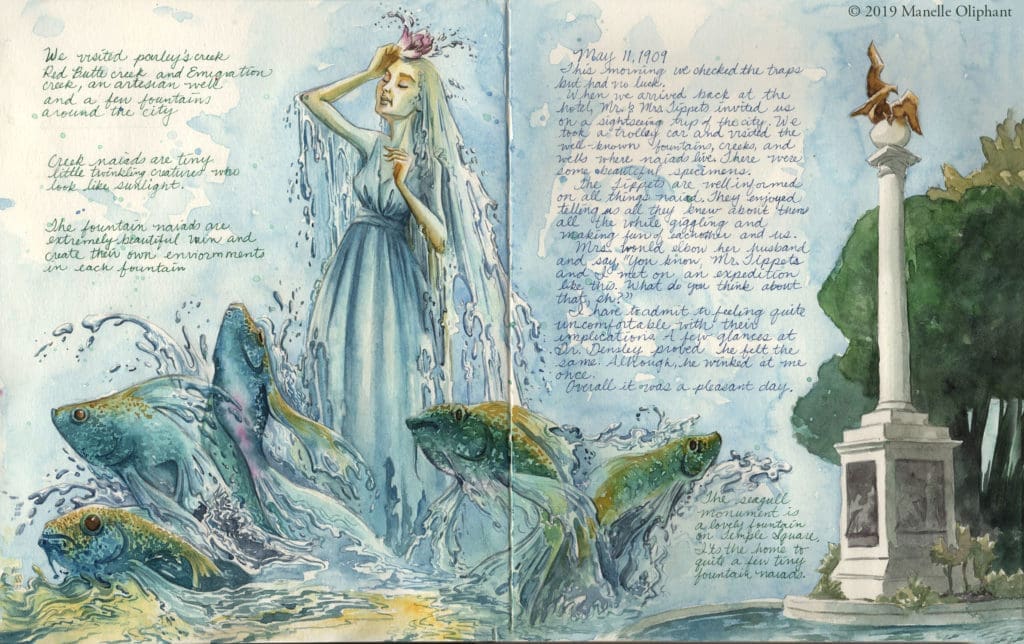 © 2019 Manelle Oliphant
We visited parley's creek
Red Butte creek and Emigration
creek, an artesian well
and a few fountains
around the city
Creek naiads are tiny
little twinkling creatures who
look like sunlight.
The fountain naiads are
extremely beautiful vain and
create their own enviornments
in each fountain
May 11, 1909
This morning we checked the traps
but had no luck.
When we arrived back at the
hotel, Mr. & Mrs Tippets invited us
on a sightseeing trip of the city. We
took a trolley car and visited the
well-known fountains, creeks, and
wells where naiads live. There were
some beautiful specimens.
The Tippets are well informed
on all things naiad. They enjoyed
telling us all they knew about them
all the while giggling and
making fun of eachother and us.
Mrs. would elbow her husband
and say, "You know, Mr. Tippets
and I met on an expedition
like this. What do you think about
that, eh?"
I have to admit to feeling quite
uncomfortable with their
implications. A few glances at
Dr. Densley proved he felt the
same. Although, he winked at me
once.
Overall it was a pleasant day.
The seagull
monument is
a lovely fountain
on Temple Square.
It's the home to
quite a few tiny
fountain naiads.